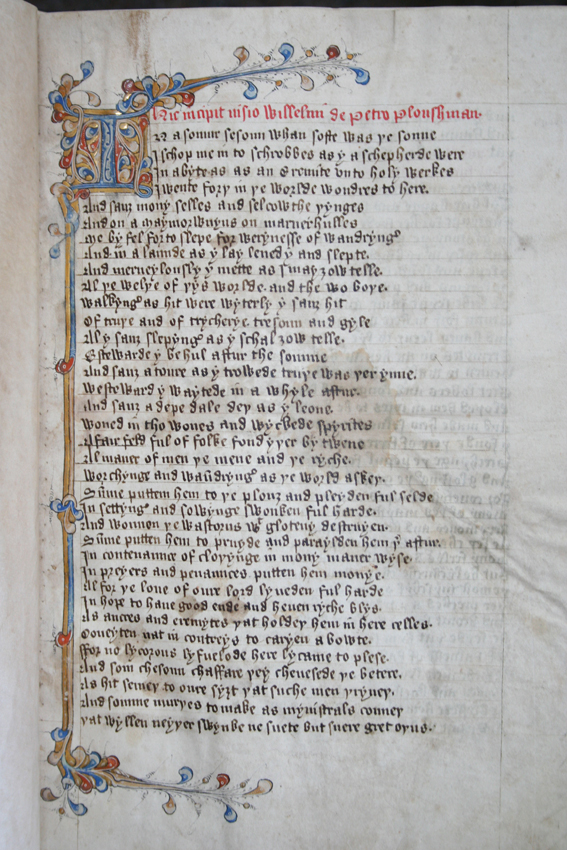 Hic incipit uisio Willelmi de Petro Ploushman.
In a somur sesoun whan softe was ye sonne
I schop me in to schrobbes as y a schepherde were
In abyte as an Eremite vnto holy werkes
I wente fory in ye worlde wondres to here.
And sauȝ mony selles and selcowthe yynges
And on a may morwnyng on maruerhulles
Me by fel for to slepe for werynesse of wandryng
And in a launde as y lay lened y and slepte.
And merueylously y mette as I may ȝow telle.
Al ye welye of yys worlde. and the wo boye.
Walkyng as hit were wyterly y sauȝ hit
Of truye and of trycherye. tresoun and gyle
Al y sauȝ slepyng as y schal ȝow telle.
Estewarde y behul aftur the sonne
And sauȝ a toure as y trowede truye was yer ynne.
Westeward y waytede in a whyle aftur.
And sauȝ a depe dale dey as y leone.
Woned in tho wones and wyckede spyrites
A fair feld ful of folke fond y yer by twene
Al maner of men ye mene and ye ryche.
Worchynge and wandryng as ye world askey.
Summe putten hem to ye plouȝ and pleyden ful selde
In settyng and sowynge swonken ful harde.
And wonnon ye wastorus wt gloteny destruyen.
Summe putten hem to pruyde and paraylden hem y aftur.
In contenaunce of cloyynge in mony maner wyse.
In preyers and penaunces putten hem monye.
Al for ye loue of oure lord lyueden ful harde
In hope to haue good ende and heuen ryche blys.
As ancres and eremytes yat holdey hem in here celles.
Coueyten nat in contreys to caryen abowte.
ffor no lycorous lyfuelode here lycame to plese.
And som chesonn chaffare yey cheuesede ye betere.
As hit semey to oure syȝt yat suche men yryuey.
And somme muryes to make as mynistrals conney
yat wyllen neyyer swynke ne suete but suere gret oyus.